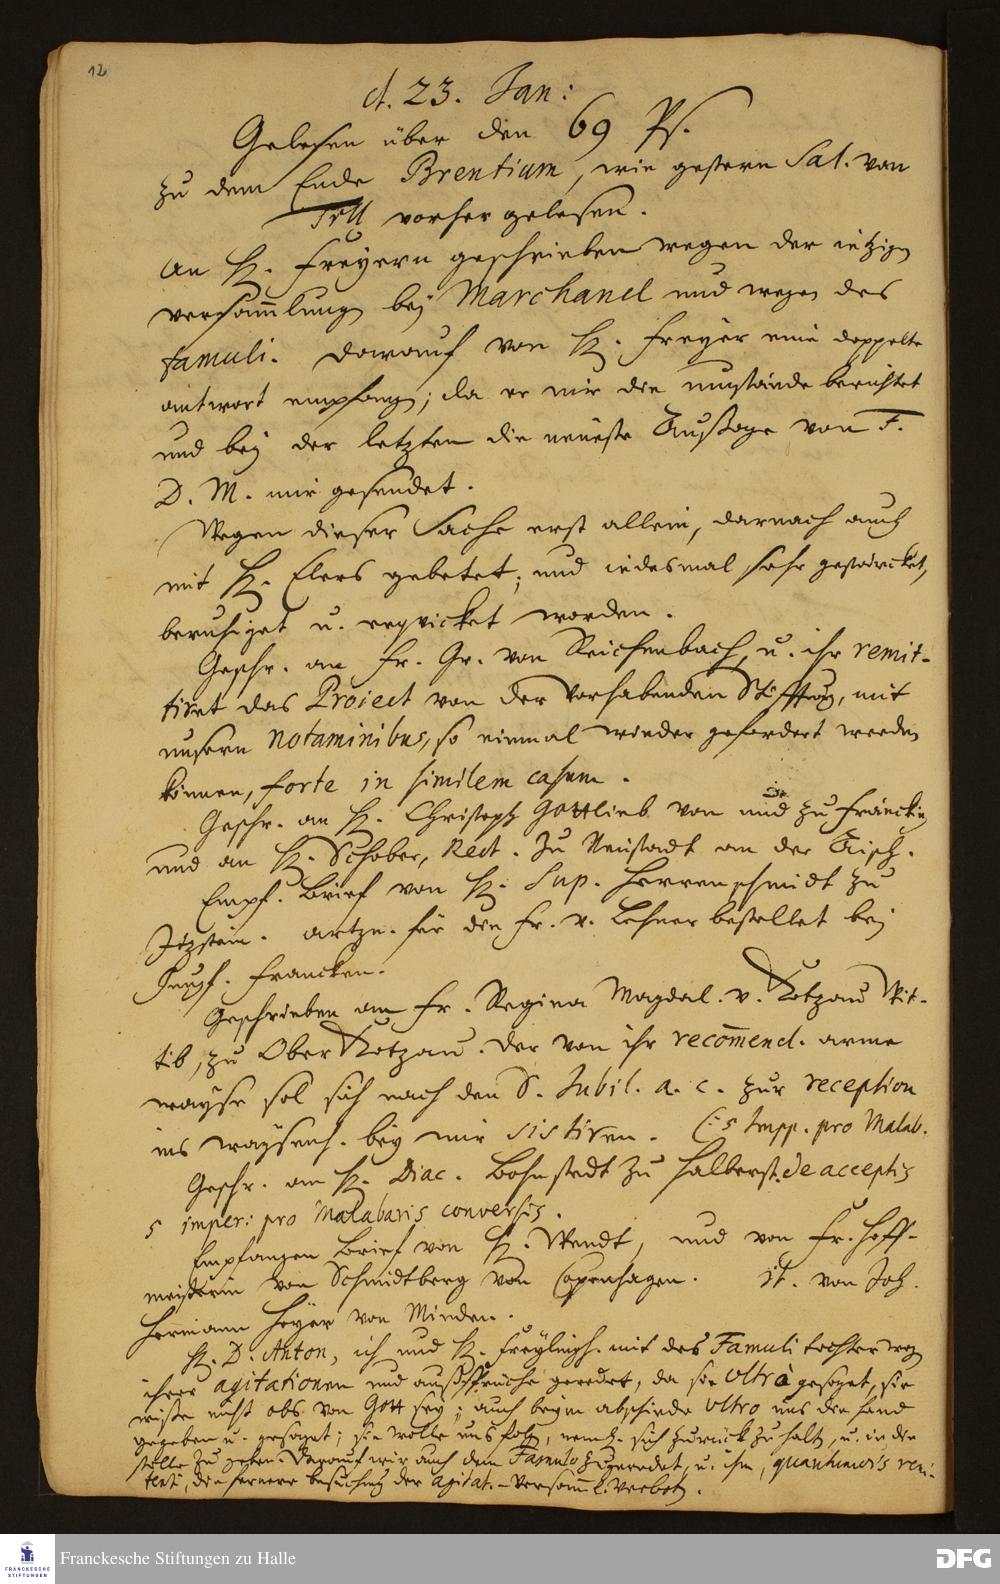 12
d. 23. Jan:
Gelesen über den 69 Ps.
zu dem Ende Brentium, wie gestern Sal. von
Till vorher gelesen.
An H. Freyern geschrieben wegen der ietzigen
versammlung bey Marchand und wegen des
famuli. darauf von H. Freyer eine doppelte
antwort empfangen; da er mir die umstände berichtet
und bey der letzten die neueste Außage von F.
D. M. mir gesendet.
Wegen dieser Sache erst allein, darnach auch
mit H. Elers gebetet; und iedesmal sehr gestärcket,
beruhiget u. erqvicket worden.
Geschr. an Fr. Gr. von Reichenbach, u. ihr remit-
tiret das Project von der vorhabenden Stifftung, mit
unsern notaminibus, so einmal wieder gefordert werden
können, forte in similem casum.
Geschr. an H. Christoph Gottlieb von und zu Fräncking
und an H. Schober, Rect. zu Neustadt an der Aisch.
Empf. Brief von H. Sup. Herrenschmidt zu
Itzstein. artzn. für den Hr. v. Lehner bestellet bey
Jungf. Francken.
Geschrieben an Fr. Regina Magdal. v. Kotzau Wit-
tib, zu Ober Kotzau. Der von ihr recommend. arme
wayse sol sich nach den S. Jubil. a. c. zur reception
ins wayßenh. bey mir sistiren. (: 5 impp. pro Malab.
Geschr. an H. Diac. Bohnstedt zu Halberst. de acceptis
5 imper: pro Malabaris conversis.
Empfangen Brief von H. Wendt, und von Fr. Hoff-
meisterin von Schmidtberg von Copenhagen. it. von Joh.
Hermann Heyer von Minden.
H. D. Anton, ich und H. Freylingh. mit des Famuli tochter wegen
ihrer agitationen und außsprüche geredet, da sie ultro gesaget, sie
wiße nicht obs von Gott sey; auch beym abschiede ultro uns die hand
gegeben u. gesaget; sie wolle uns folgen, nemlich sich zurück zu halten, u. in der
stille zu gehen. Darauf wir auch dem Famulo zugeredet, u. ihm, quantumvis reni-
tenti, die fernere besuchung der agitat.-versamml. verboten.
Franckesche Stiftungen zu Halle
FRANCKESCHE
STIFTUNGEN
DFG